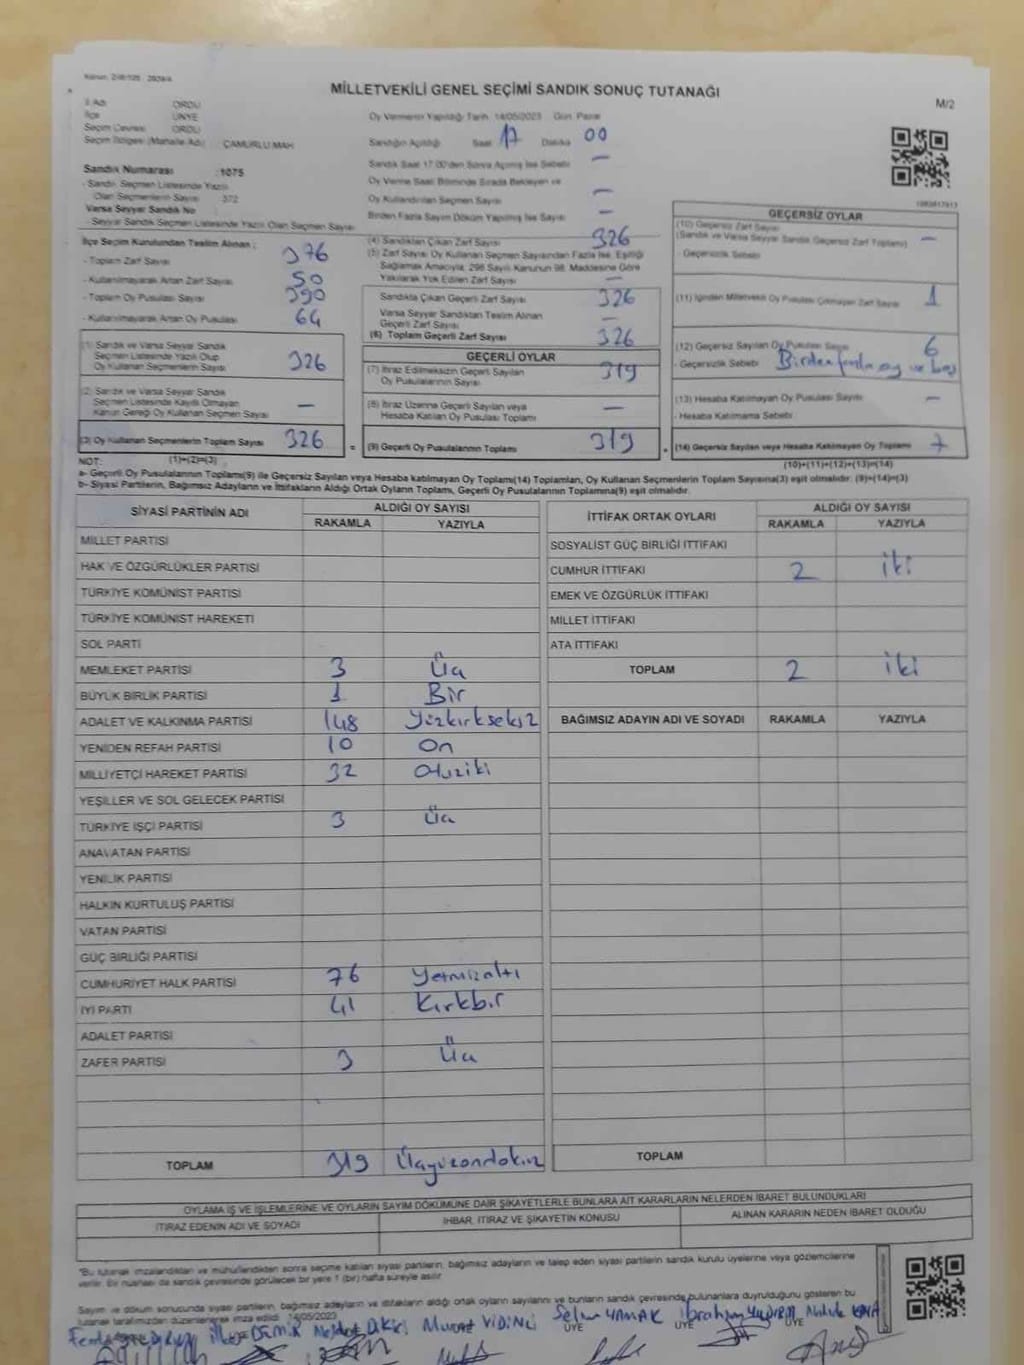 MİLLETVEKİLİ GENEL SEÇİMİ SANDIK SONUÇ TUTANAĞI
M/2
İl Adı ORDU
İlçe ÜNYE
Seçim Çevresi ORDU
Seçim Bölgesi (Mahalle Adı) ÇAMURLU MAH
Oy Vermenin Yapıldığı Tarih: 14/05/2023 Gün: Pazar
Sandığın Açıldığı Saat 17 Dakika 00
Sandık Saat 17:00'den Sonra Açılmış İse Sebebi —
Oy Verme Saati Bitiminde Sırada Bekleyen ve
Oy Kullandırılan Seçmen Sayısı —
Birden Fazla Sayım Döküm Yapılmış İse Sayısı —
Sandık Numarası : 1075
- Sandık Seçmen Listesinde Yazılı
Olan Seçmenlerin Sayısı : 372
Varsa Seyyar Sandık No
- Seyyar Sandık Seçmen Listesinde Yazılı Olan Seçmen Sayısı
İlçe Seçim Kurulundan Teslim Alınan ;
- Toplam Zarf Sayısı 376
- Kullanılmayarak Artan Zarf Sayısı 50
- Toplam Oy Pusulası Sayısı 390
- Kullanılmayarak Artan Oy Pusulası 64
(1) Sandık ve Varsa Seyyar Sandık
Seçmen Listesinde Yazılı Olup
Oy Kullanan Seçmenlerin Sayısı 326
(2) Sandık ve Varsa Seyyar Sandık
Seçmen Listesinde Kayıtlı Olmayan
Kanun Gereği Oy Kullanan Seçmen Sayısı —
(3) Oy Kullanan Seçmenlerin Toplam Sayısı 326
(1)+(2)=(3)
(4) Sandıktan Çıkan Zarf Sayısı 326
(5) Zarf Sayısı Oy Kullanan Seçmen Sayısından Fazla İse, Eşitliği
Sağlamak Amacıyla, 298 Sayılı Kanunun 98. Maddesine Göre
Yakılarak Yok Edilen Zarf Sayısı —
Sandıkta Çıkan Geçerli Zarf Sayısı 326
Varsa Seyyar Sandıktan Teslim Alınan
Geçerli Zarf Sayısı —
(6) Toplam Geçerli Zarf Sayısı 326
GEÇERLİ OYLAR
(7) İtiraz Edilmeksizin Geçerli Sayılan
Oy Pusulalarının Sayısı 319
(8) İtiraz Üzerine Geçerli Sayılan veya
Hesaba Katılan Oy Pusulası Toplamı —
= (9) Geçerli Oy Pusulalarının Toplamı 319
GEÇERSİZ OYLAR
(10) Geçersiz Zarf Sayısı
(Sandık ve Varsa Seyyar Sandık Geçersiz Zarf Toplamı) —
- Geçersizlik Sebebi
(11) İçinden Milletvekili Oy Pusulası Çıkmayan Zarf Sayısı 1
(12) Geçersiz Sayılan Oy Pusulası Sayısı 6
- Geçersizlik Sebebi Birden fazla oy ve boş
(13) Hesaba Katılmayan Oy Pusulası Sayısı —
- Hesaba Katılmama Sebebi
+ (14) Geçersiz Sayılan veya Hesaba Katılmayan Oy Toplamı 7
(10)+(11)+(12)+(13)=(14)
NOT:
a- Geçerli Oy Pusulalarının Toplamı(9) ile Geçersiz Sayılan veya Hesaba katılmayan Oy Toplamı(14) Toplamları, Oy Kullanan Seçmenlerin Toplam Sayısına(3) eşit olmalıdır. (9)+(14)=(3)
b- Siyasi Partilerin, Bağımsız Adayların ve İttifakların Aldığı Ortak Oyların Toplamı, Geçerli Oy Pusulalarının Toplamına(9) eşit olmalıdır.
SİYASİ PARTİNİN ADI ALDIĞI OY SAYISI
RAKAMLA YAZIYLA
MİLLET PARTİSİ
HAK VE ÖZGÜRLÜKLER PARTİSİ
TÜRKİYE KOMÜNİST PARTİSİ
TÜRKİYE KOMÜNİST HAREKETİ
SOL PARTİ
MEMLEKET PARTİSİ 3 Üç
BÜYÜK BİRLİK PARTİSİ 1 Bir
ADALET VE KALKINMA PARTİSİ 148 Yüzkırksekiz
YENİDEN REFAH PARTİSİ 10 On
MİLLİYETÇİ HAREKET PARTİSİ 32 Otuziki
YEŞİLLER VE SOL GELECEK PARTİSİ
TÜRKİYE İŞÇİ PARTİSİ 3 Üç
ANAVATAN PARTİSİ
YENİLİK PARTİSİ
HALKIN KURTULUŞ PARTİSİ
VATAN PARTİSİ
GÜÇ BİRLİĞİ PARTİSİ
CUMHURİYET HALK PARTİSİ 76 Yetmişaltı
İYİ PARTİ 41 Kırkbir
ADALET PARTİSİ
ZAFER PARTİSİ 3 Üç
TOPLAM 319 Üçyüzondokuz
İTTİFAK ORTAK OYLARI ALDIĞI OY SAYISI
RAKAMLA YAZIYLA
SOSYALİST GÜÇ BİRLİĞİ İTTİFAKI
CUMHUR İTTİFAKI 2 iki
EMEK VE ÖZGÜRLÜK İTTİFAKI
MİLLET İTTİFAKI
ATA İTTİFAKI
TOPLAM 2 iki
BAĞIMSIZ ADAYIN ADI VE SOYADI RAKAMLA YAZIYLA
TOPLAM
OYLAMA İŞ VE İŞLEMLERİNE VE OYLARIN SAYIM DÖKÜMÜNE DAİR ŞİKAYETLERLE BUNLARA AİT KARARLARIN NELERDEN İBARET BULUNDUKLARI
İTİRAZ EDENİN ADI VE SOYADI İHBAR, İTİRAZ VE ŞİKAYETİN KONUSU ALINAN KARARIN NEDEN İBARET OLDUĞU
*Bu tutanak imzalandıktan ve mühürlendikten sonra seçime katılan siyasi partilerin, bağımsız adayların ve talep eden siyasi partilerin sandık kurulu üyelerine veya gözlemcilerine
verilir. Bir nüshası da sandık çevresinde görülecek bir yere 1 (bir) hafta süreyle asılır.
Sayım ve döküm sonucunda siyasi partilerin, bağımsız adayların ve ittifakların aldığı ortak oyların sayılarını ve bunların sandık çevresinde bulunanlara duyurulduğunu gösteren bu
tutanak tarafımızdan düzenlenerek imza edildi. 14/05/2023
Murat VİDİNLİ Selim YAMAK İbrahim
ÜYE ÜYE ÜYE